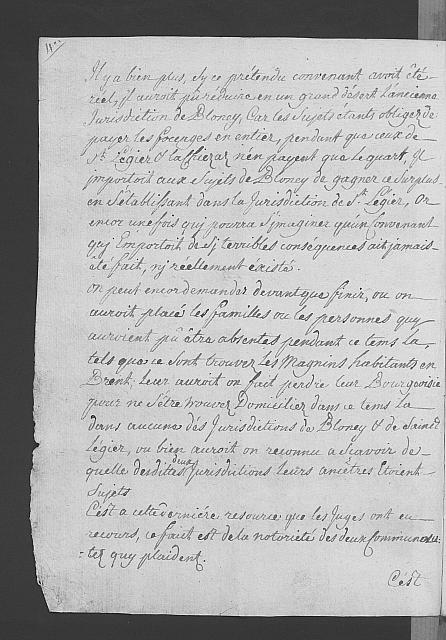 Il y a bien plus, Sy ce prétendu convenant avoit été
réel, Il auroit pû reduire en un grand désert Lancienne
Jurisdiction de Bloney, Car les Sujets étants obligez de
payer les focages en entier, pendant que ceux de
St. Légier & Lachieraz n'en payent que le quart, Il
importoit aux Sujets de Bloney de gagner ce Surplus
en S'établissant dans la Jurisdiction de St. Légier, Or
encor une fois quj pourra S'jmaginer qu'un Convenant
quj Emportoit de Sj terribles consequences ait jamais
été fait, nj réellement éxisté.
on peut encor demander devant que finir, ou on
auroit placé les familles ou les personnes quy
auroient pû être absentes pendant ce tems la,
tels que se sont trouvez Les Magnins habitants en
Brent; Leur auroit on fait perdre leur Bourgeoisie
pour ne S'être trouvez Domiciliez dans ce tems la
dans aucune dés Jurisdictions de Bloney & de Saint
Légier, ou bien auroit on reconnu a Scavoir de
quelle desdittes deux Jurisdictions leurs ancêtres Etoient
Sujets
C'ést a cette derniére resource que les Juges ont eu
recours, ce faict est de la notorieté des deux Communau-
-tez quy plaident.
C'ést